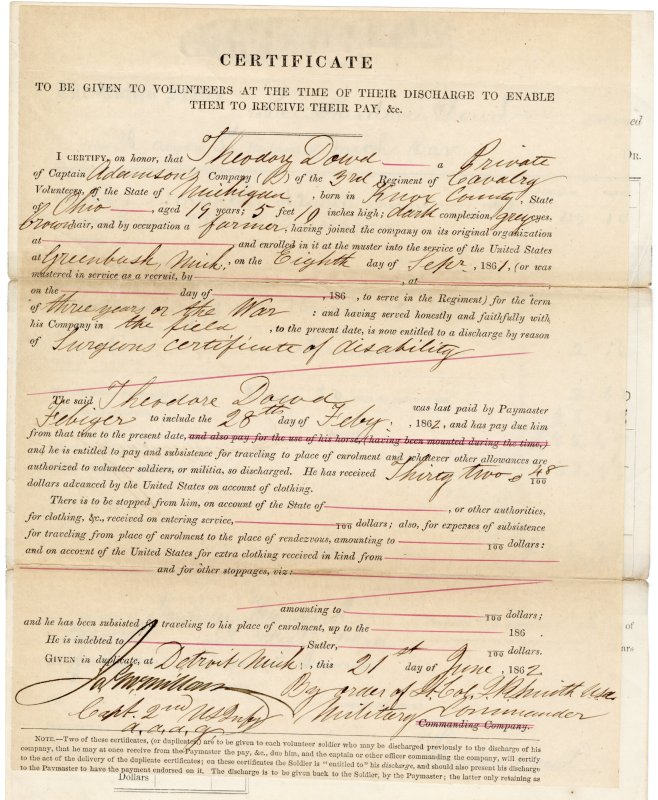 CERTIFICATE
TO BE GIVEN TO VOLUNTEERS AT THE TIME OF THEIR DISCHARGE TO ENABLE
THEM TO RECEIVE THEIR PAY, &c.
I CERTIFY, on honor, that Theodore Dowd a Private
of Captain Adamson's Company (D) of the 3rd Regiment of Cavalry
Volunteers, of the State of Michigan, born in Knox County, State
of Ohio, aged 19 years; 5 feet 10 inches high; dark complexion, grey eyes,
Brown hair, and by occupation a farmer, having joined the company on its original organization
at and enrolled in it at the muster into the service of the United States
at Greenbush, Mich, on the Eighth day of Sepr, 1861, (or was
mustered in service as a recruit, by , at
on the day of , 186 , to serve in the Regiment) for the term
of three years or the War : and having served honestly and faithfully with
his Company in the field , to the present date, is now entitled to a discharge by reason
of Surgeons certificate of disability
The said Theodore Dowd was last paid by Paymaster
Febiger to include the 28th day of Feby. , 1862, and has pay due him
from that time to the present date, and also pay for the use of his horse, (having been mounted during the time,)
and he is entitled to pay and subsistence for traveling to place of enrolment and whatever other allowances are
authorized to volunteer soldiers, or militia, so discharged. He has received Thirty two & 48/100
dollars advanced by the United States on account of clothing.
There is to be stopped from him, on account of the State of , or other authorities,
for clothing, &c., received on entering service, 100 dollars; also, for expenses of subsistence
for traveling from place of enrolment to the place of rendezvous, amounting to 100 dollars:
and on account of the United States for extra clothing received in kind from
and for other stoppages, viz:
amounting to 100 dollars;
and he has been subsisted for traveling to his place of enrolment, up to the 186 .
He is indebted to Sutler, 100 dollars.
GIVEN in duplicate, at Detroit Mich: , this 21st day of June, 1862
By order of Lt Col. Smith USA
Capt 2nd US Infy Military Commander
a.a.a.g. Commanding Company.
NOTE.—Two of these certificates, (or duplicates) are to be given to each volunteer soldier who may be discharged previously to the discharge of his
company, that he may at once receive from the Paymaster the pay, &c., due him, and the captain or other officer commanding the company, will certify
to the act of the delivery of the duplicate certificates; on these certificates the Soldier is "entitled" to his discharge, and should also present his discharge
to the Paymaster to have the payment endorsed on it. The discharge is to be given back to the Soldier, by the Paymaster; the latter only retaining as
Dollars